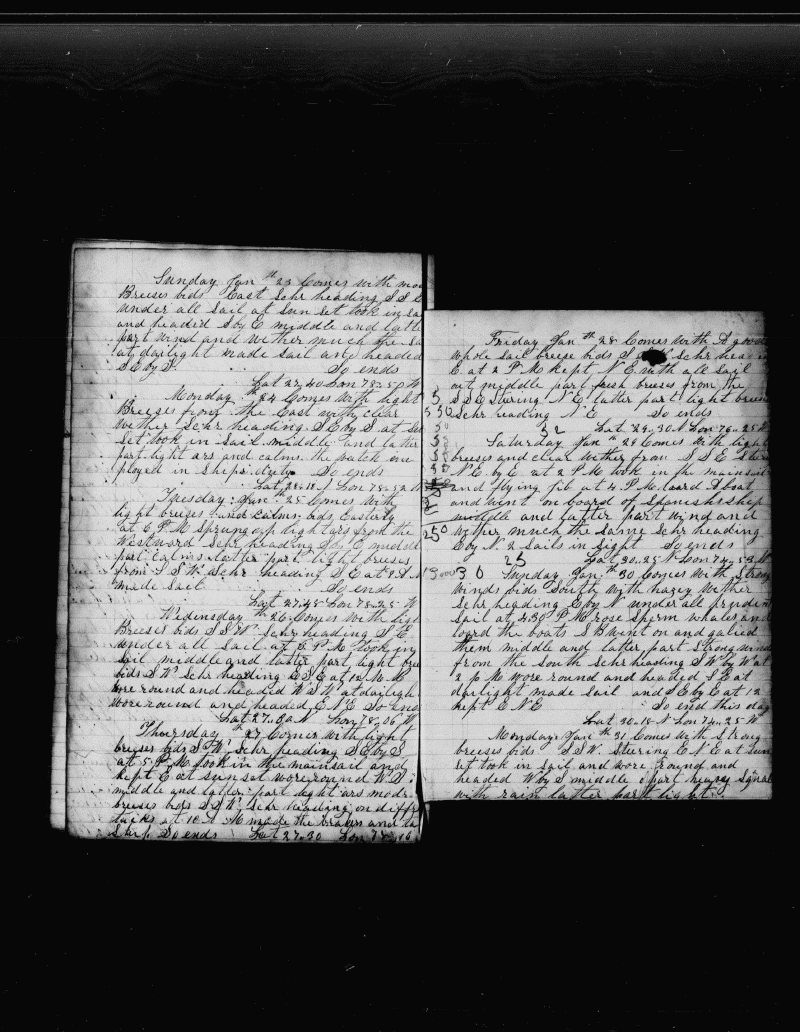 Sunday Jan th 23 Comes with mo
Breeses bids East Schr heading S S E
under all Sail at Sun Set took in Sa
and headid S by E middle and latte
part wind and wether much the Sa
at darlight made Sail and headed
S E by S. So ends
Lat 27,40 Lon 78-25 W
Monday th 24 Comes with light
Breeses from the East with clear
wether Schr heading S E by S at Sun
Set took in Sail middle and latter
part light ars and calms the watch em
ployed in Ships duty So ends
Lat 28-18 Lon 78-52 W
Tuesday Jan th 25 Comes with
light breeses and calms bids Easterly
at 6 P M Sprung up light ars from the
Westword Schr heading middle
part calms latter part light breeses
from S S W Schr heading S E at
made Sail So ends
Lat 27.48 Lon 78-25 W
Wednesday th 26 Comes with ligh
Breeses bids S S W Schr heading S E
under all Sail at 6 P M took in
Sail middle and latter part light bree
bids S W Schr heading E S E at 12 M
wore round and headed W S W at darligh
wore round and headed E N E So ends
Lat 27.00 N Lon 78.06 W
Thursday th 27 Comes with light
breeses bids S W Schr heading S E by S
at 5 P M took in the mainsail and
kept E at sunset wore round W S
middle and latter part light ars modr
breeses bids S S W Schr heading on diffr
tacks at 10 A M made the
So ends Lat 27-30 Lon 78-16
Friday Jan th 28 Comes with A good
whole sail breeze bids S Schr heading
E at 2 P M kept N E with all Sail
out middle part fresh breeses from the
S S E Steering N E latter part light breese
Schr heading N E So ends
32 Lat 29-30 N Lon 76-25 W
Saturday Jan th 29 Comes with light
breeses and clear wether from S S E Steri
N E by E at 2 P M took in the mainsail
and flying jib at 4 P M loard A boat
and went on board of Spaneish Ship
middle and latter part wind and
wether much the Same Schr heading
E by N. 2 Sails in Sight So ends
25 Lat 30-25 N Lon 74-53 W
30 Sunday Jan th 30 Comes with Strong
winds bids South with hazey wether
Schr heading E by N under all prudent
Sail at 4.30 P M rose Sperm whales and
loard the boats S B went on and galied
them middle and latter part Strong wind
from the South Schr heading S W by W at
2 P M wore round and headed S E at
darlight made Sail and S E by E at 12
kept E N E So end this day
Lat 30-15 N Lon 74-25 W
Monday Jan th 31 Comes with Strong
breeses bids S S W. Stering E N E at sun
set took in Sail and wore round and
headed W by S middle part heavy Squal
with rain latter part light
5
5 50
50
50
250